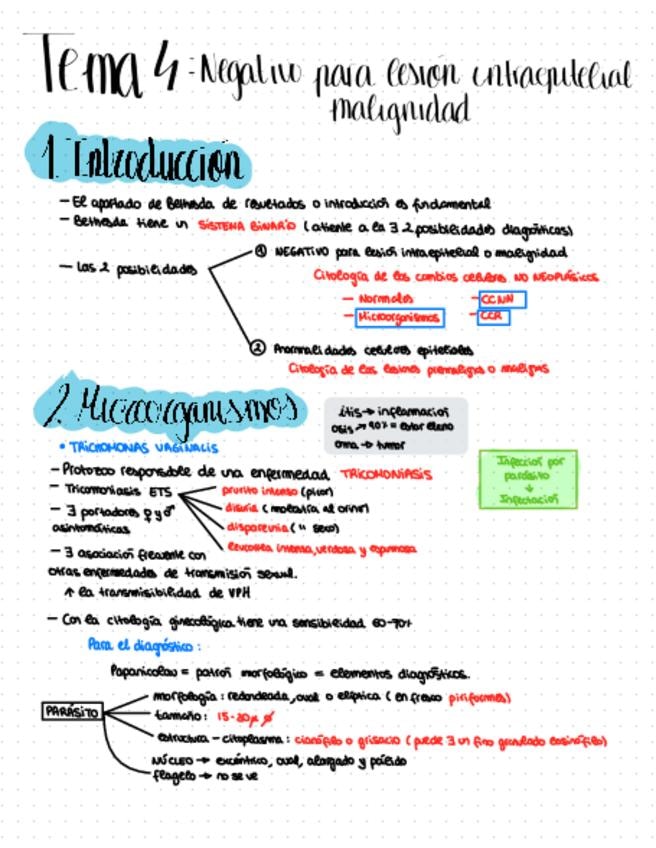 Tema 4: Negativo para lesión intraepitelial
malignidad
1. Introducción
- El apartado de Bethesda de resultados o introducción es fundamental
- Bethesda tiene un SISTEMA BINARIO (atiente a la 3 2 posibilidades diagnósticas)
- Las 2 posibilidades
① NEGATIVO para lesión intraepitelial o malignidad
Citología de los cambios celulares NO NEOPLÁSICOS
- Normales - CCNN
- Microorganismos - CCR
② Anormalidades celulares epiteliales
Citología de las lesiones premalignas o malignas
2. Microorganismos
itis → inflamación
osis → 90% = estar lleno
oma → tumor
• TRICHOMONAS VAGINALIS
- Protozoo responsable de una enfermedad TRICOMONIASIS
Infección por
parásito
↓
Infestación
- Tricomoniasis ETS
prurito intenso (picor)
- 3 portadores ♀ y ♂
asintomáticos
disuria (molestia al orinar)
dispareunia (" sexo)
leucorrea intensa, verdosa y espumosa
- 3 asociación frecuente con
otras enfermedades de transmisión sexual.
↑ la transmisibilidad de VPH
- Con la citología ginecológica tiene una sensibilidad 60-70%
Para el diagnóstico:
Papanicolau = patrón morfológico = elementos diagnósticos.
PARÁSITO
morfología: redondeada, oval o elíptica (en fresco piriformes)
tamaño: 15-30μ ø
estructura - citoplasma: cianófilo o grisáceo (puede 3 un fino granulado eosinófilo)
NÚCLEO → excéntrico, oval, alargado y pálido
flagelo → no se ve